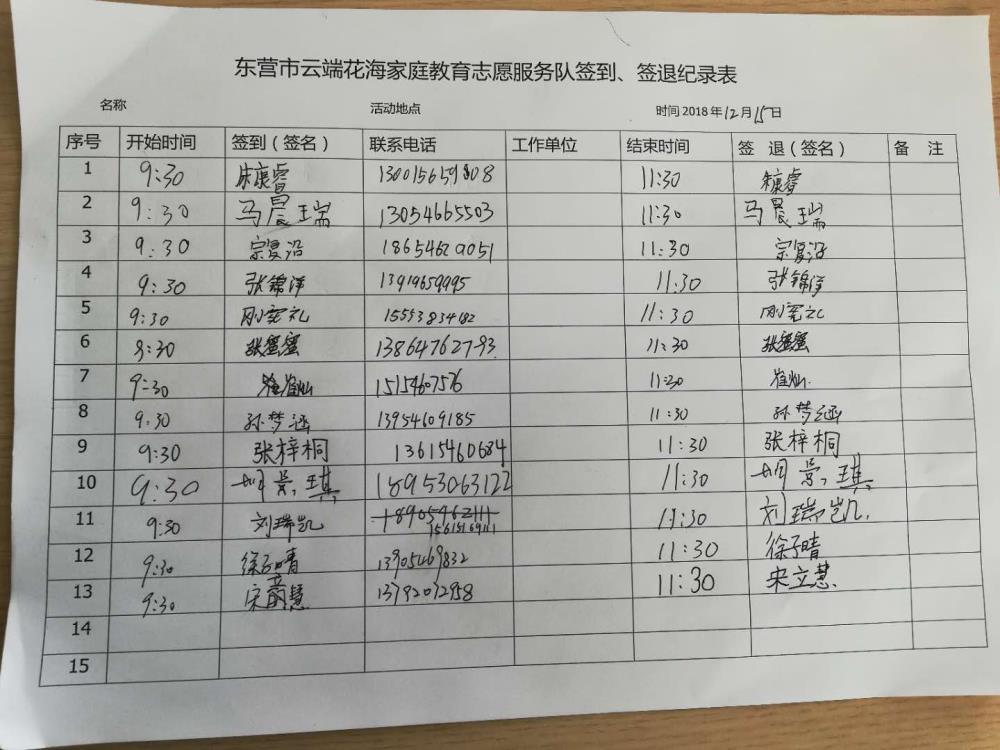 东营市云端花海家庭教育志愿服务队签到、签退纪录表
名称 活动地点 时间 2018 年 12 月 15 日
序号 开始时间 签到（签名） 联系电话 工作单位 结束时间 签 退（签名） 备 注
1 9:30 朱康睿 13001565 08 11:30 朱康睿
2 9:30 马晨瑞 13054665503 11:30 马晨瑞
3 9:30 宗复沿 18654629051 11:30 宗复沿
4 9:30 张锦洋 13919659995 11:30 张锦洋
5 9:30 15553834182 11:30
6 9:30 张蜜蜜 13864762793 11:30 张蜜蜜
7 9:30 崔灿 15154607576 11:30 崔灿
8 9:30 孙梦涵 13954609185 11:30 孙梦涵
9 9:30 张梓桐 13615460684 11:30 张梓桐
10 9:30 胡景琪 18953063122 11:30 胡景琪
11 9:30 刘瑞凯 18905462111 11:30 刘瑞凯
12 9:30 徐子晴 13905469832 11:30 徐子晴
13 9:30 宋立慧 13792072958 11:30 宋立慧
14
15